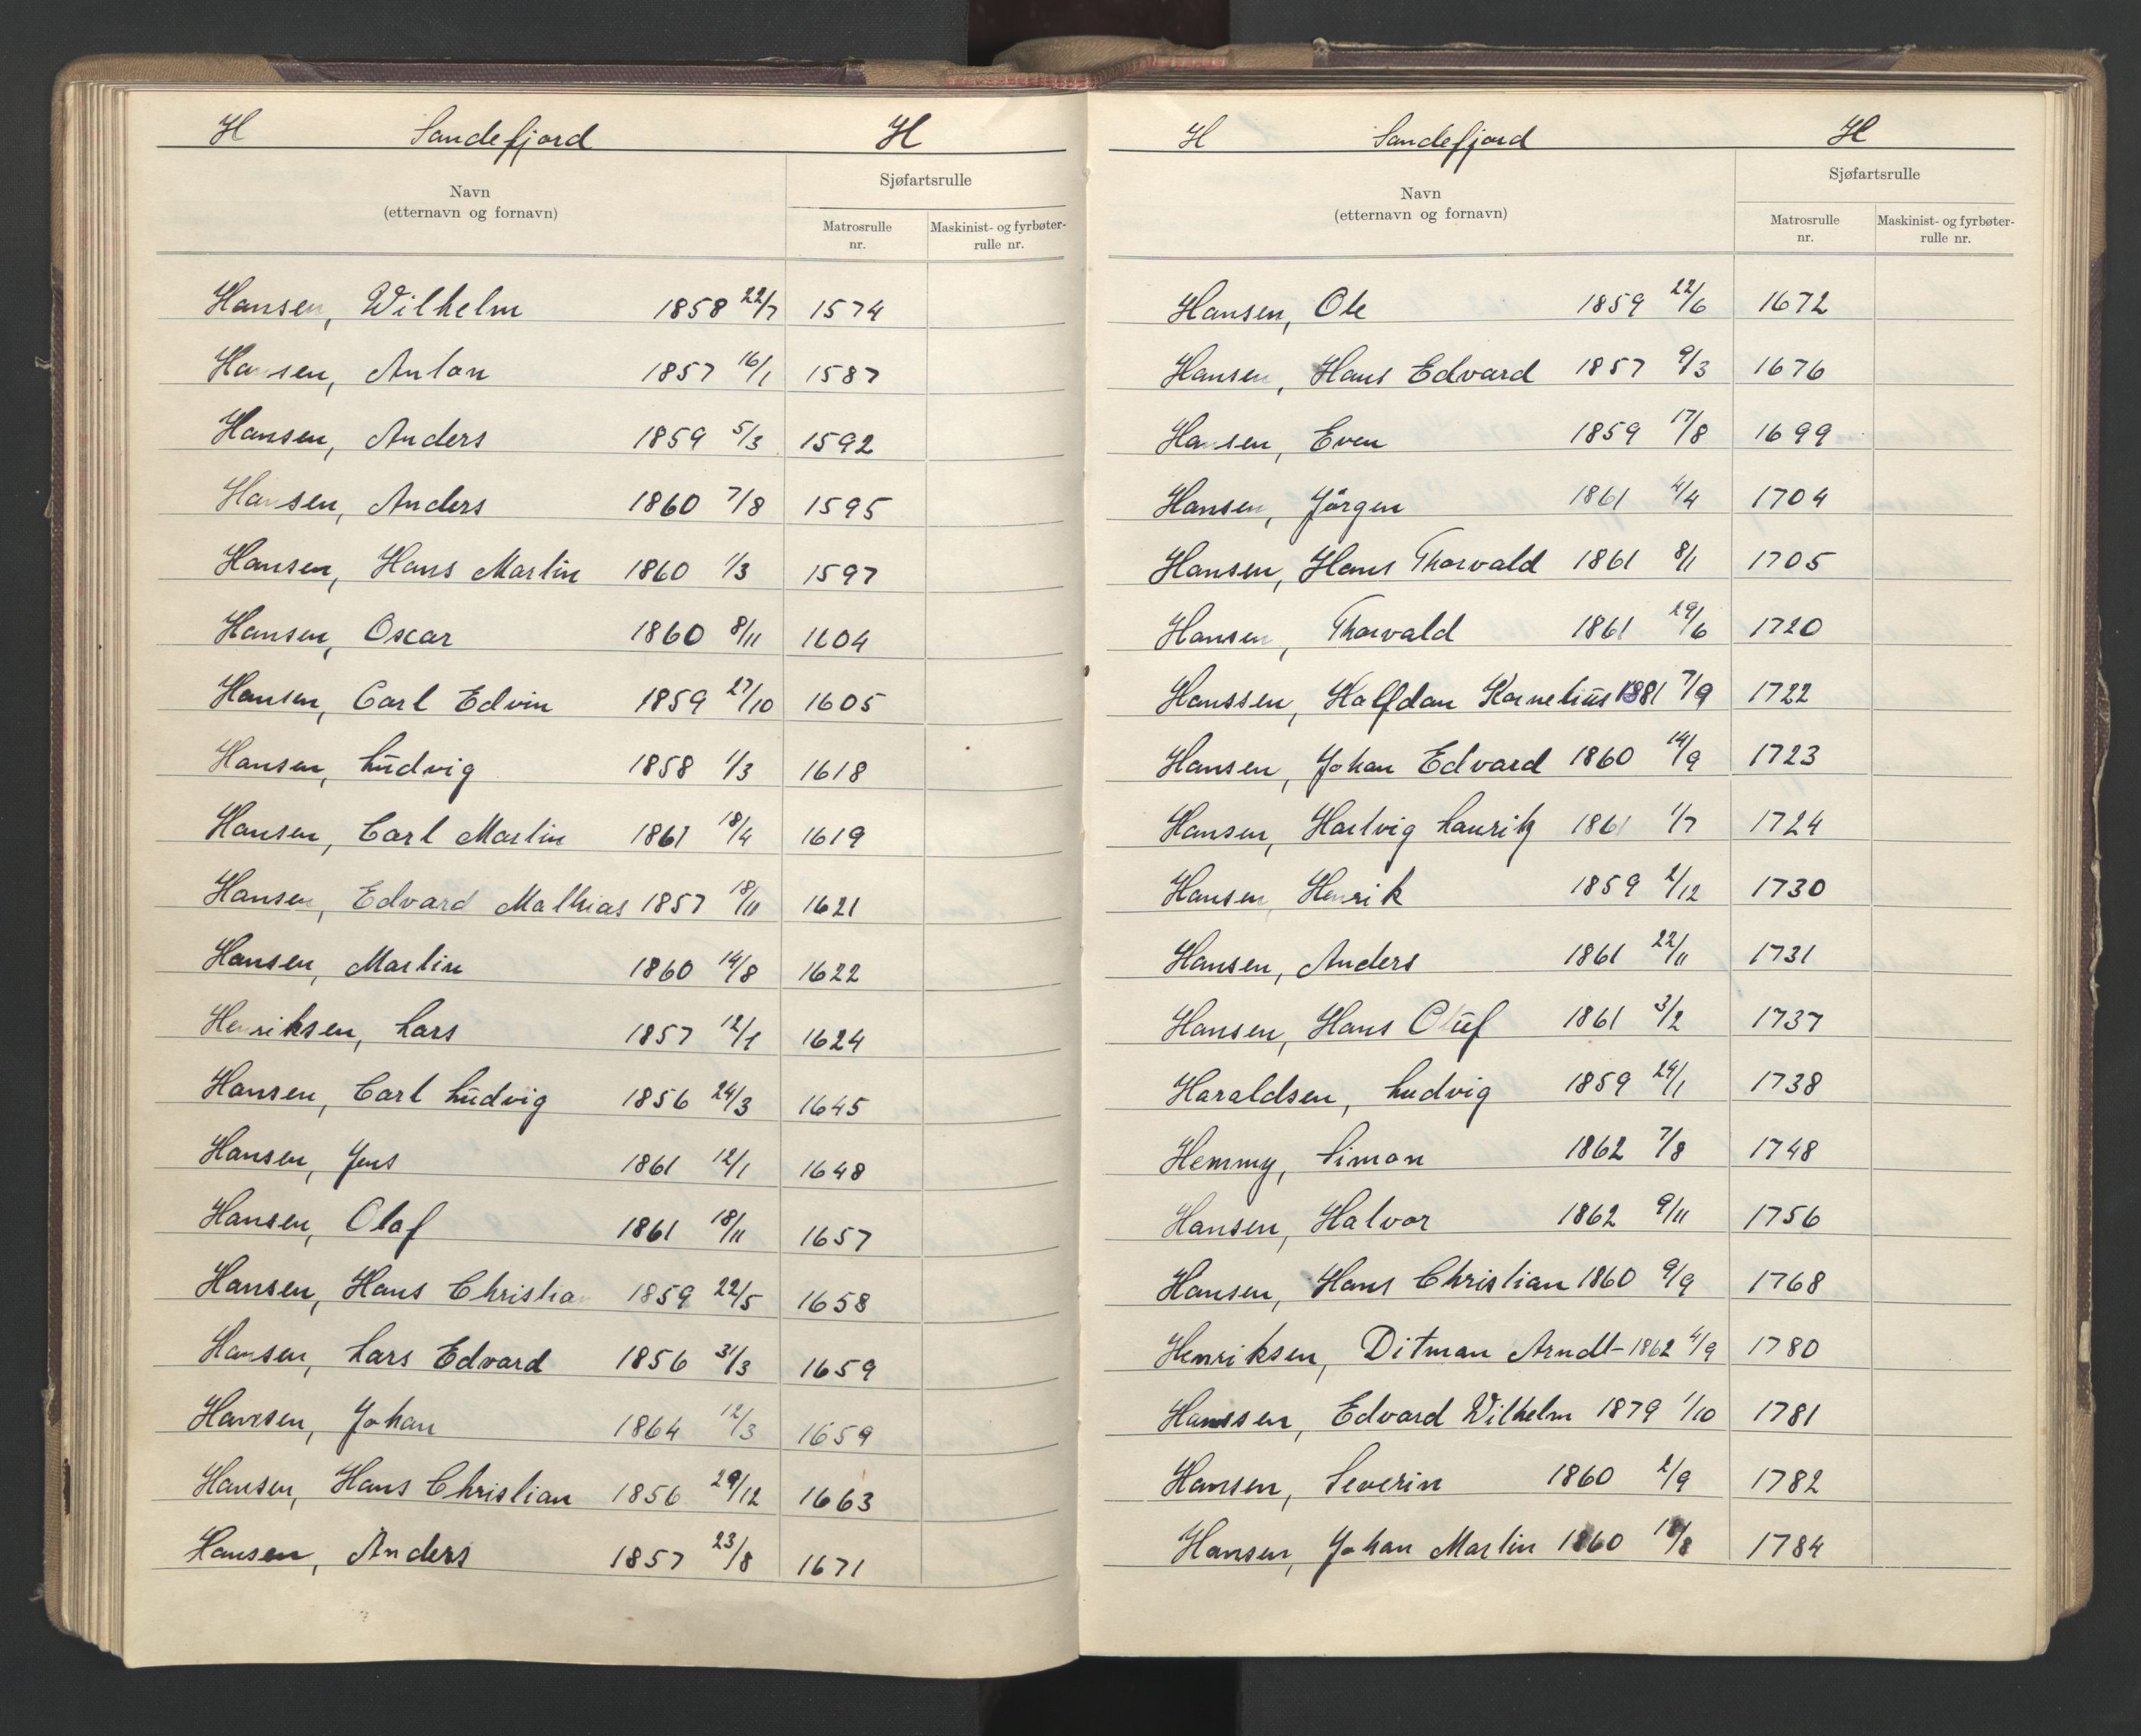 H Sandefjord H
Sjøfartsrulle
Navn
(etternavn og fornavn)
Matrosrulle nr.
Maskinist- og fyrbøter-rulle nr.
Hansen, Wilhelm 1858 22/7 1574
Hansen, Anton 1857 16/1 1587
Hansen, Anders 1859 5/3 1592
Hansen, Anders 1860 7/8 1595
Hansen, Hans Martin 1860 1/3 1597
Hansen, Oscar 1860 8/11 1604
Hansen, Carl Edvin 1859 27/10 1605
Hansen, Ludvig 1858 1/3 1618
Hansen, Carl Martin 1861 18/4 1619
Hansen, Edvard Mathias 1857 18/11 1621
Hansen, Martin 1860 14/8 1622
Henriksen, Lars 1857 12/1 1624
Hansen, Carl Ludvig 1856 24/3 1645
Hansen, Jens 1861 12/1 1648
Hansen, Olaf 1861 18/11 1657
Hansen, Hans Christian 1859 22/5 1658
Hansen, Lars Edvard 1856 31/3 1659
Hansen, Johan 1864 12/3 1659
Hansen, Hans Christian 1856 29/12 1663
Hansen, Anders 1857 23/8 1671
H Sandefjord H
Sjøfartsrulle
Navn
(etternavn og fornavn)
Matrosrulle nr.
Maskinist- og fyrbøter-rulle nr.
Hansen, Ole 1859 22/6 1672
Hansen, Hans Edvard 1857 9/3 1676
Hansen, Even 1859 17/8 1699
Hansen, Jörgen 1861 4/4 1704
Hansen, Hans Thorvald 1861 8/1 1705
Hansen, Thorvald 1861 29/6 1720
Hanssen, Halfdan Kornelius 1881 7/9 1722
Hansen, Johan Edvard 1860 14/9 1723
Hansen, Hartvig Lauritz 1861 1/7 1724
Hansen, Henrik 1859 2/12 1730
Hansen, Anders 1861 22/11 1731
Hansen, Hans Oluf 1861 3/2 1737
Haraldsen, Ludvig 1859 24/1 1738
Hemmy, Simon 1862 7/8 1748
Hansen, Halvor 1862 9/11 1756
Hansen, Hans Christian 1860 9/9 1768
Henriksen, Ditman Arndt - 1862 4/9 1780
Hanssen, Edvard Wilhelm 1879 1/10 1781
Hansen, Severin 1860 2/9 1782
Hansen, Johan Martin 1860 1784